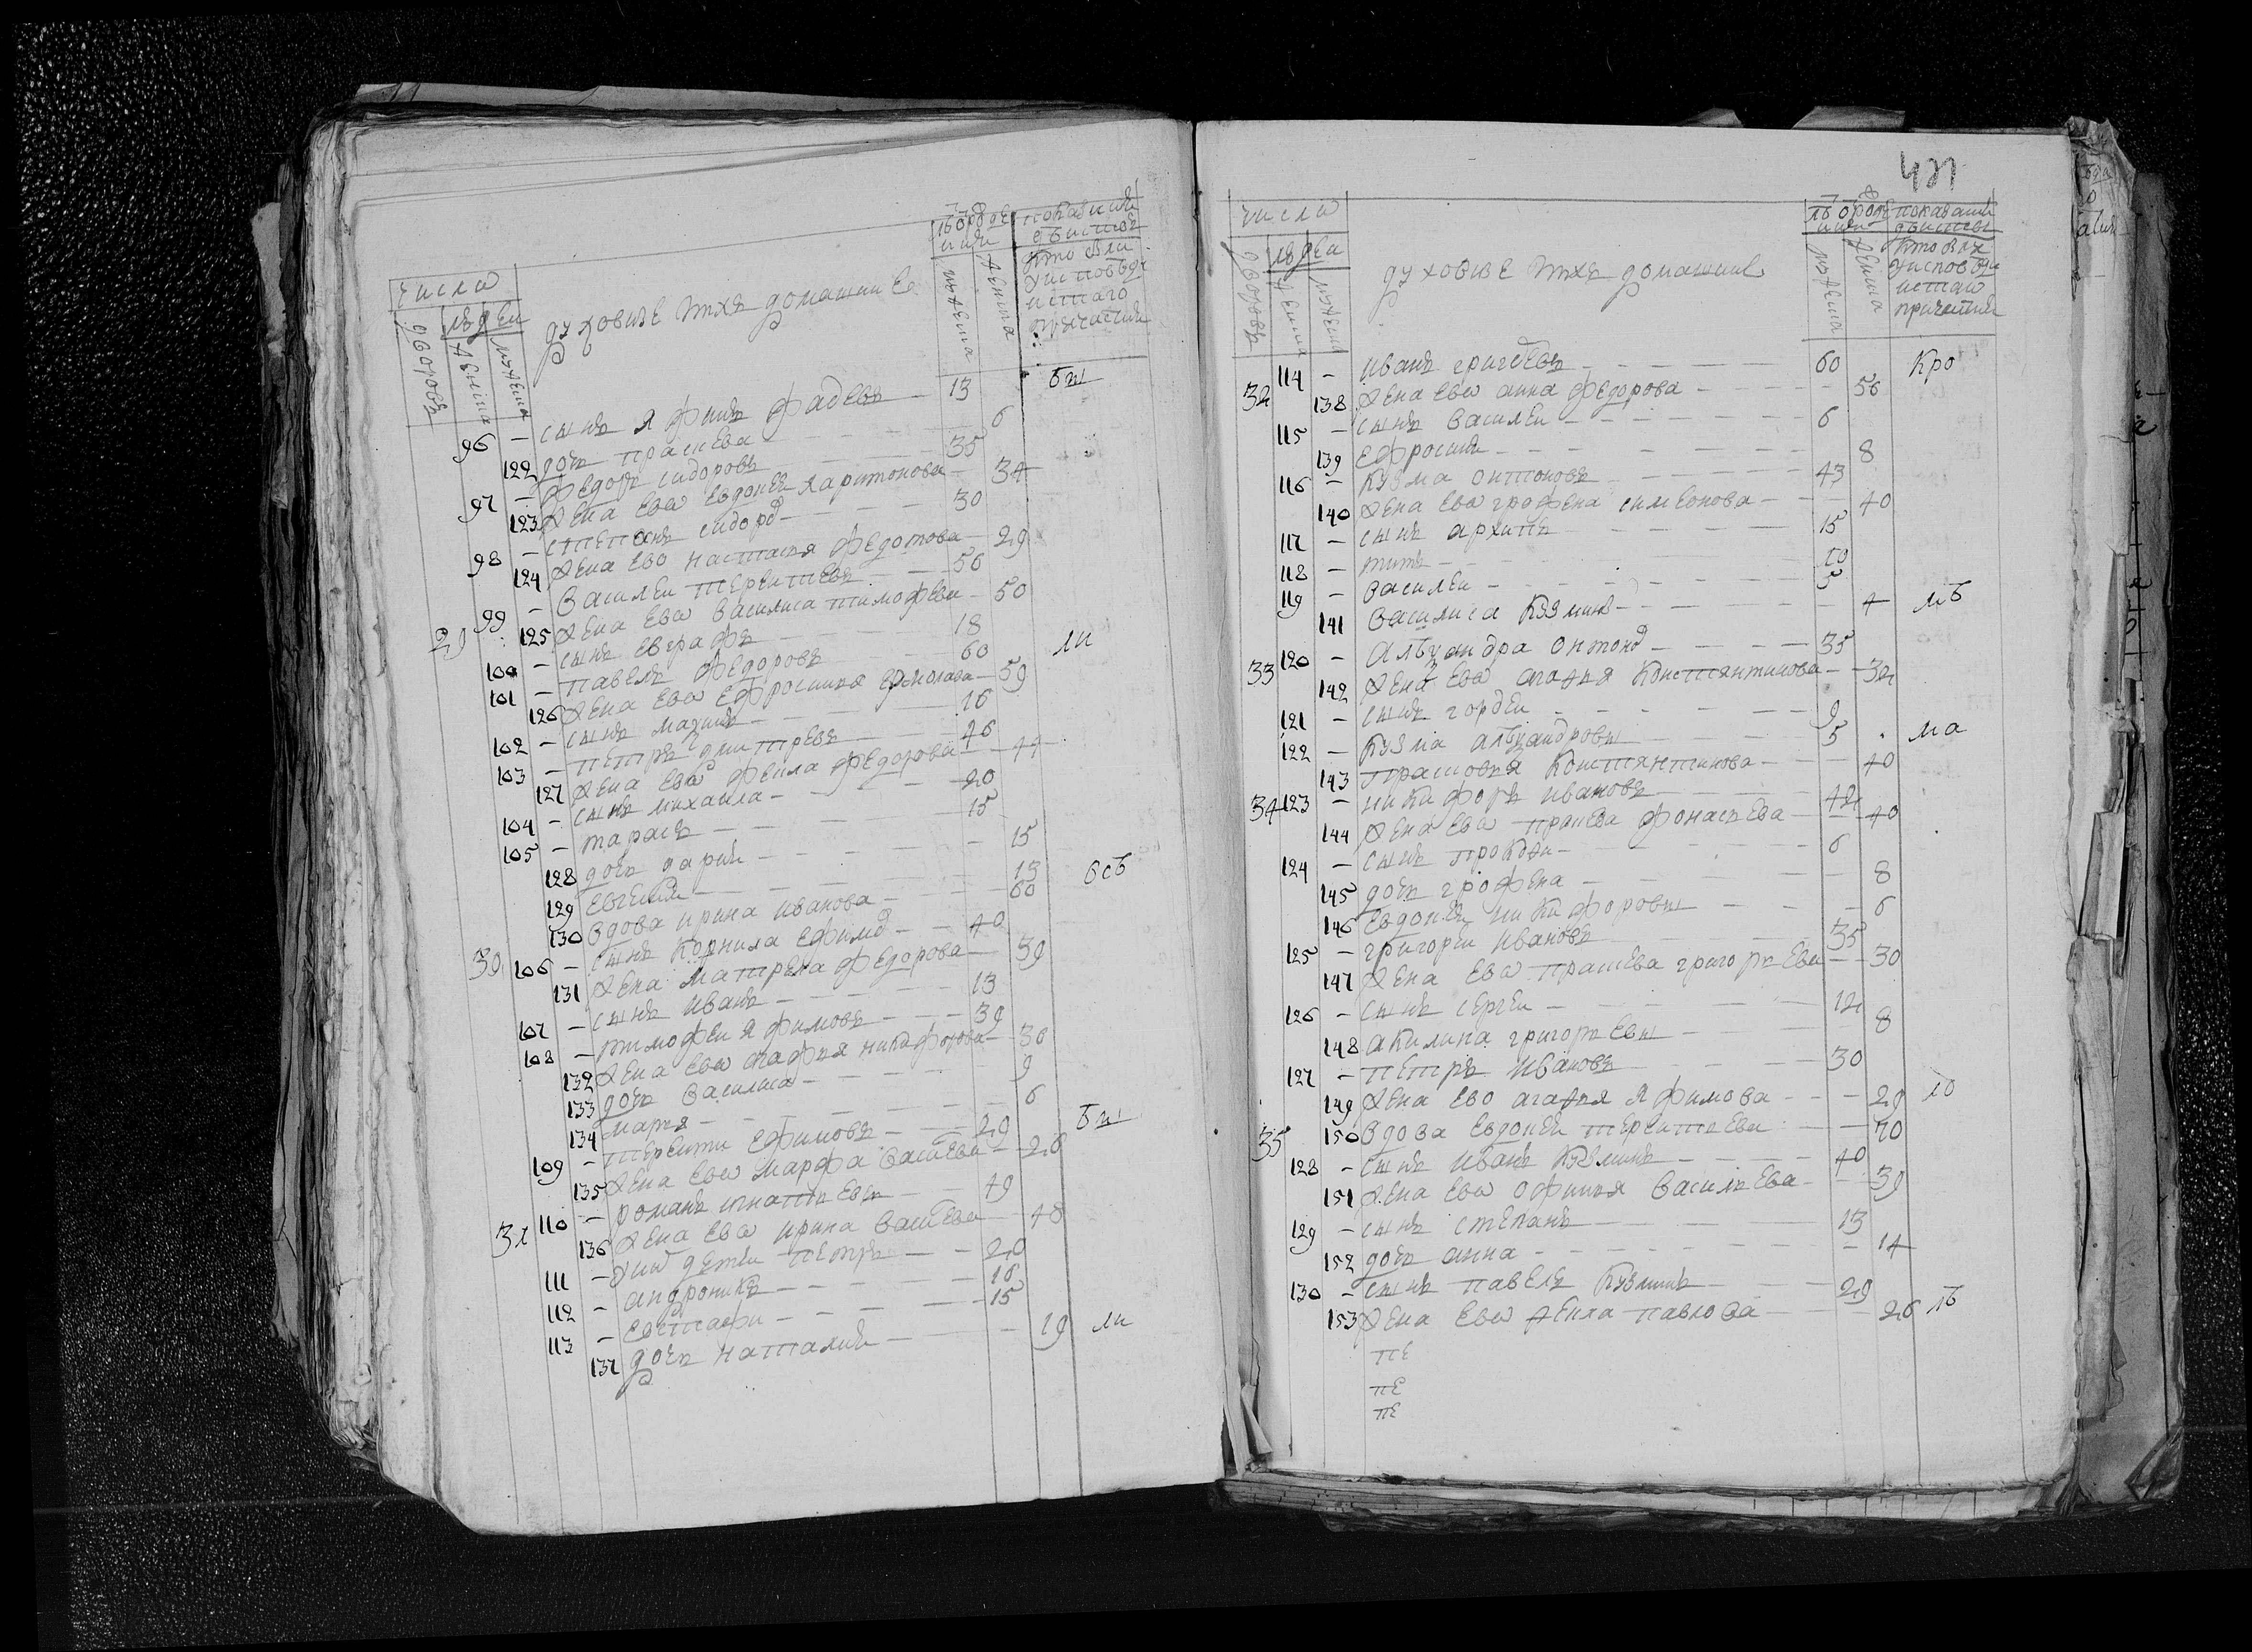 число
людеи
дворовъ
женска
мужеска
духовные и ихъ домашние
лѣто рожде
ния
мужеска
женска
показание
действъ
кто были
у исповѣди
и стаго
причастия
96 - сынъ Яфимъ Фадеевъ 13 бы
122 дочь праскева 6
97 - Федоръ сидоровъ 35
123 жена ево евдокея харитонова 34
98 - степанъ сидоро 30
124 жена ево настасия федотова 29
99 - Василеи терентиевъ 50
29 125 жена ево василиса тимофеева 50
100 - сынъ евграфъ 18
101 - павелъ федоровъ 60 ли
126 жена ево ефросиния ермолаева 59
102 - сынъ максимъ 16
103 - петръ дмитревъ 46
127 жена ево фекла федорова 44
104 - сынъ михаила 20
105 - тарасъ 15
128 дочь дария 15
129 евгения 13
130 вдова ирина иванова 60 бсб
30 106 - сынъ корнила ефимо 40
131 жена матрена федорова 39
107 - сынъ иванъ 13
108 - тимофеи яфимовъ 39
132 жена ево агафия никифорова 36
133 дочь василиса 9
134 марья 6
109 - терентеи ефимовъ 29 бы
135 жена ево марфа василева 26
31 110 - романъ игнатьевъ 49
136 жена ево ирина василева 48
111 - у них дети петръ 20
112 - андроникъ 16
113 - евстафи 15
137 дочь наталия 19 ли
421
число
людеи
дворовъ
женска
мужеска
духовные и ихъ домашние
лѣто рожде
ния
мужеска
женска
показание
действъ
кто были
у исповѣди
и стаго
причастия
32 114 - иванъ григоревъ 60 Кро
138 жена ево анна федорова 56
115 - сынъ василеи 6
139 ефросиня 8
116 - кузма онтоновъ 43
140 жена ево грофена симеонова 40
117 - сынъ архипъ 15
118 - титъ 10
119 - василеи 5
141 василиса кузмина 4 мб
33 120 - алѣзандра онтоно 35
142 жена ево агафия константинова 32
121 - сынъ гордеи 9
122 - кузма алѣзандровы 5 ма
143 прасковя константинова 40
34 123 - никифоръ ивановъ 42
144 жена ево праскева фонасьева 40
124 - сынъ прокофи 6
145 дочь грофена 8
146 евдокея никифоровы 6
125 - григореи ивановъ 35
147 жена ево праскева григорьева 30
126 - сынъ сергеи 12
148 акилина григорьевы 8
127 - петръ ивановъ 30
149 жена ево агафия яфимова 29 ло
35 150 вдова евдокея терентьева 70
128 - сынъ иванъ кузминъ 40
151 жена ево офимия васильева 39
129 - сынъ степанъ 13
152 дочь анна 14
130 - сынъ павелъ кузминъ 29
153 жена ево фекла павлова 26 лб
пе
пе
пе